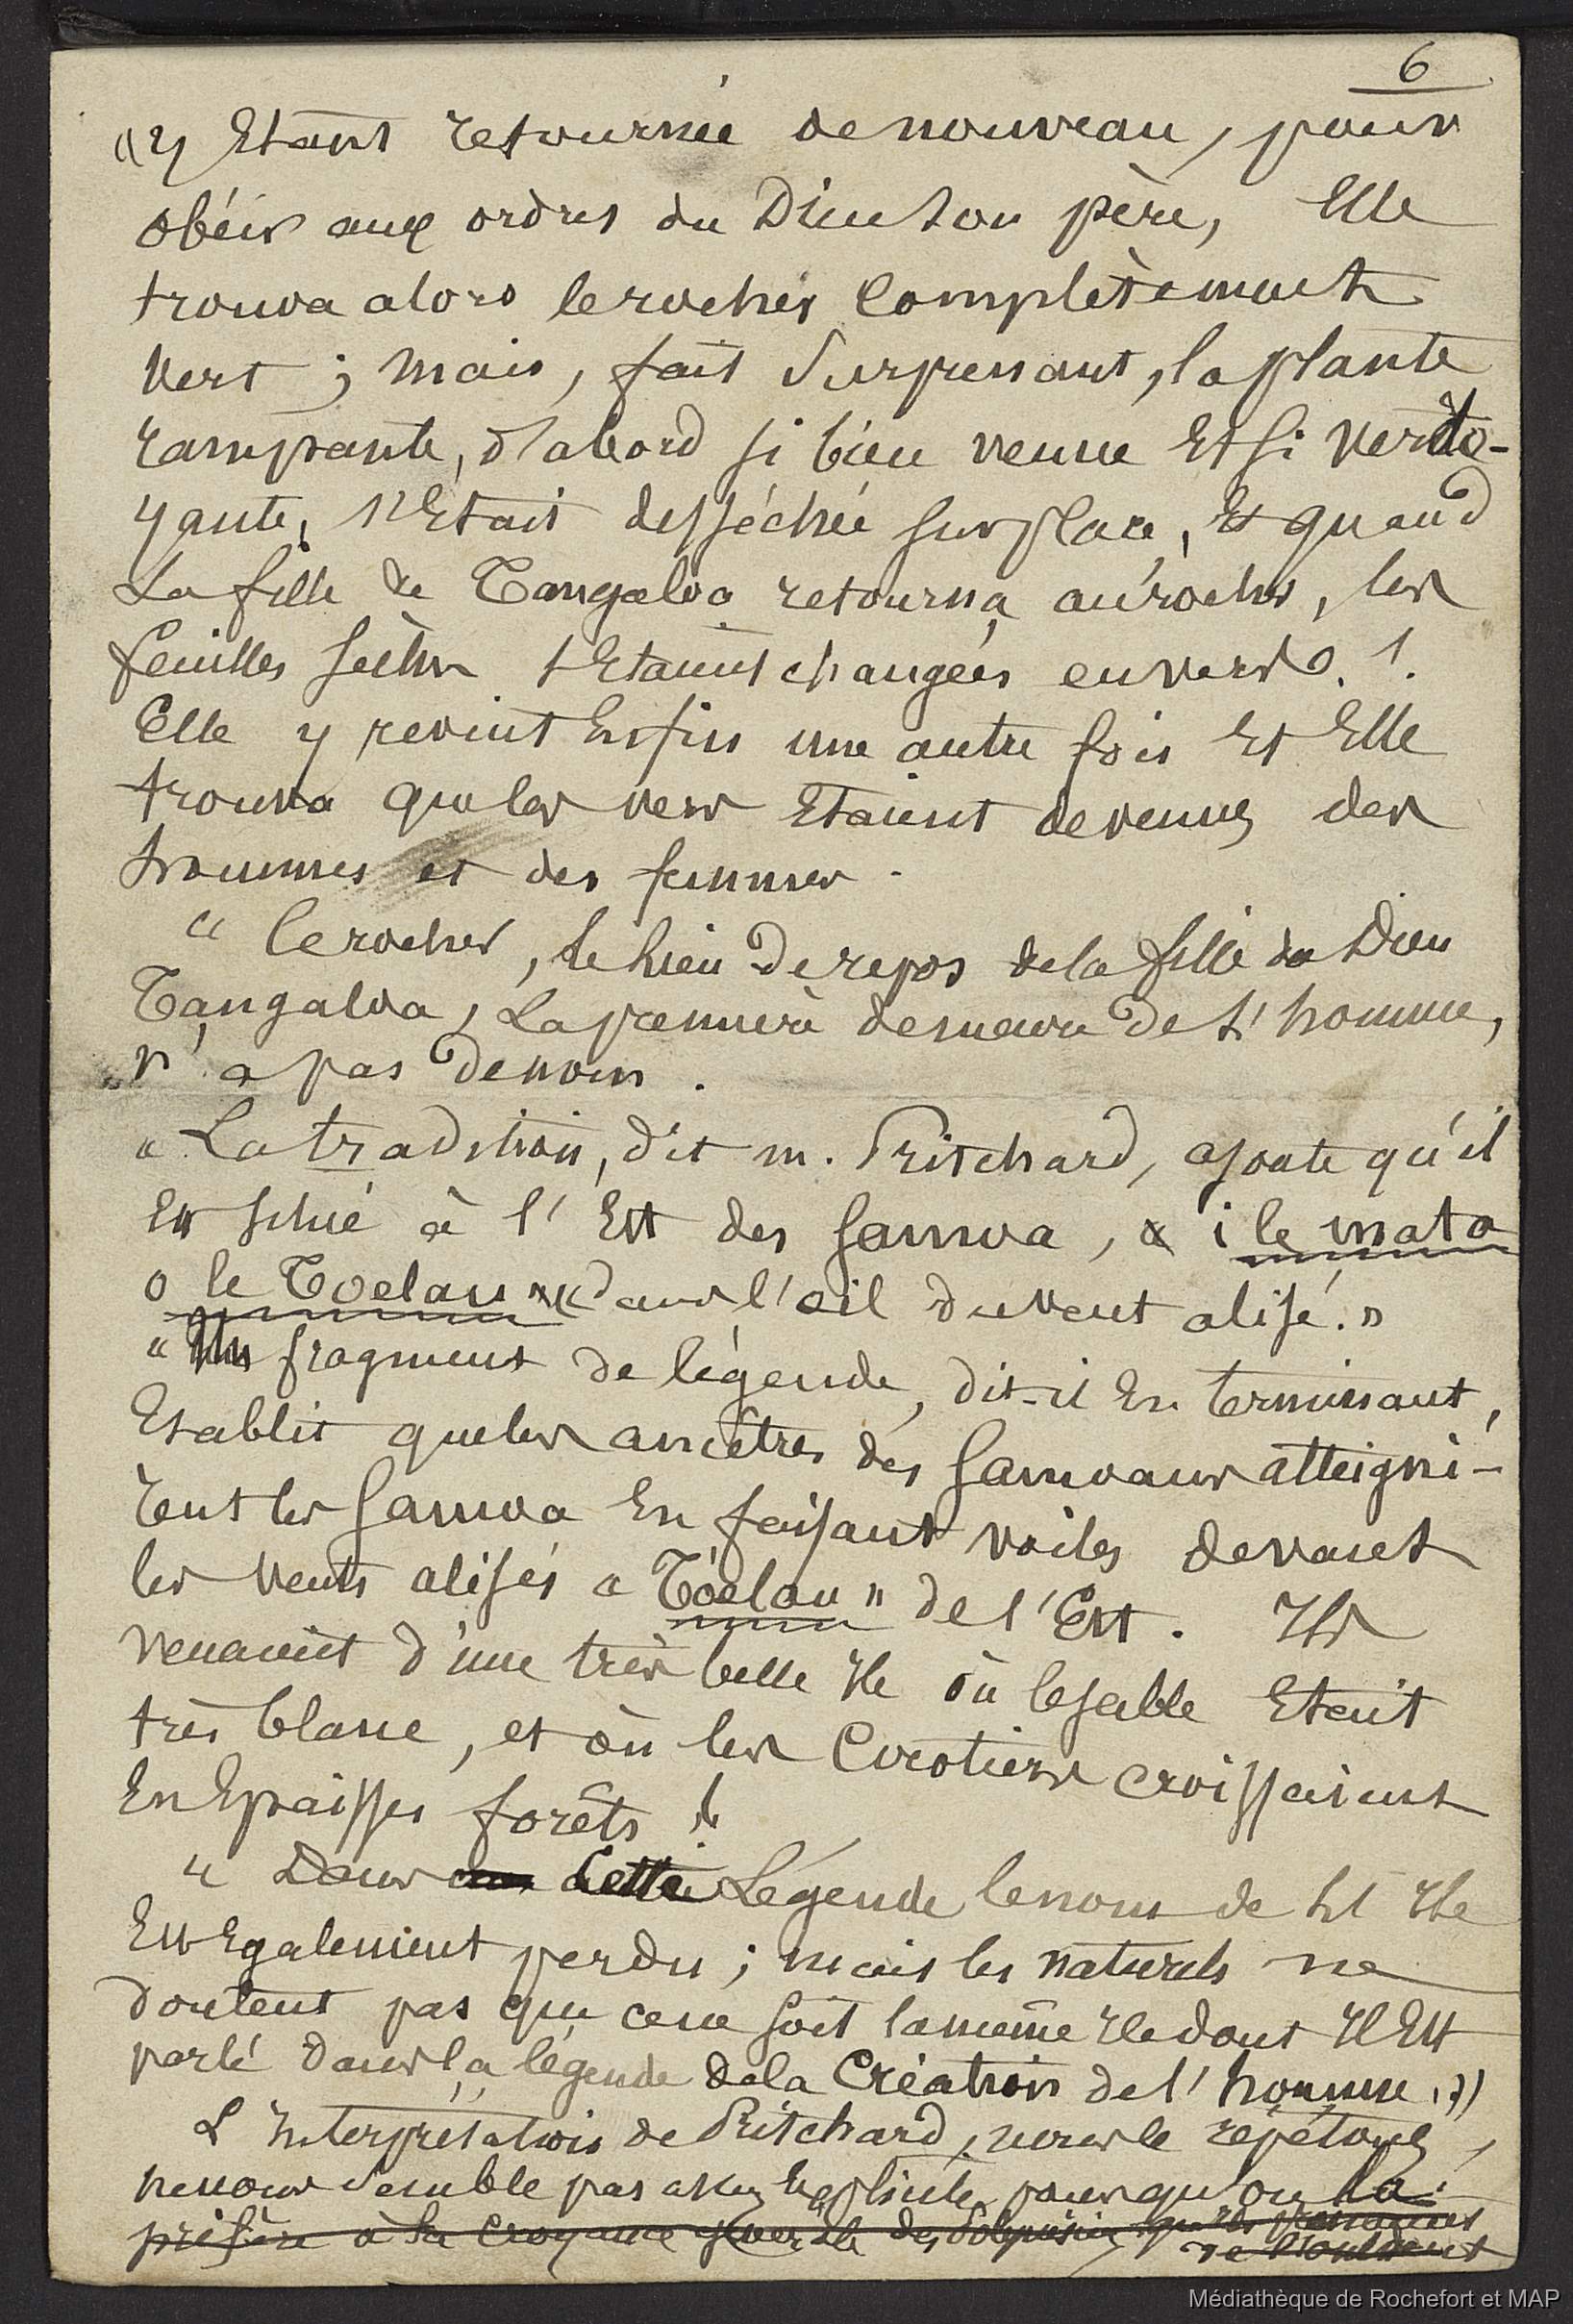 6
« Y Etant retournée de nouveau, pour
obéir aux ordres du Dieu son père, Elle
trouva alors le rocher complètement
vert ; mais, fait surprenant, la plante
rampante, d'abord si bien venue Et si verdo-
yante, s'Etait desséchée sur place, Et quand
La fille de Tangaloa retourna au rocher, les
feuilles sèches s'Etaient changées en vers !
Elle y revint Enfin une autre fois Et Elle
trouva que les vers Etaient devenus des
hommes et des femmes.
« Ce rocher, le lieu de repos de la fille du Dieu
Tangaloa, La première demeure de L'homme,
n'a pas de nom.
« La tradition, dit m. Pritchard, ajoute qu'il
Est situé à l'Est des Samoa, « i le mata
o le Toelau » « dans l'œil du vent alisé. »
« Un fragment de légende, dit-il En terminant,
Etablit que les ancêtres des Samoans atteigni-
rent les Samoa En faisant voiles devant
les vents alisés « Toelau » de l'Est. Ils
venaient d'une très belle Ile où le sable Etait
très blanc, et où les Cocotiers croissaient
En Epaisses forêts !
« Dans cette Légende le nom de L'Ile
Est Egalement perdu ; mais les naturels ne
doutent pas que ce ne soit la même Ile dont Il Est
parlé dans la légende de la Création de l'homme. »
L'Interprétation de Pritchard, nous le répétons,
ne nous semble pas assez Explicite pour qu'on la
préfère à la croyance générale des Polynésiens